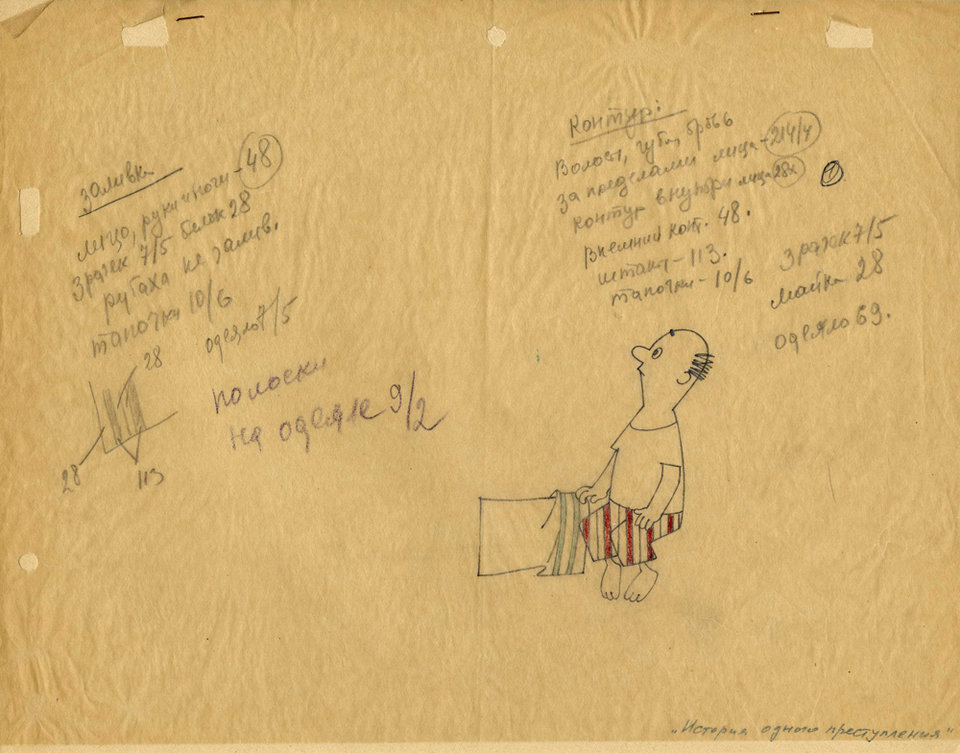 заливка
лицо, руки и ноги - 48
Зрачек 7/5 белок 28
рубаха не залив.
тапочки 10/6
одеяло 7/5
28
28
113
полоски
на одеяле 9/2
Контур:
Волосы, губы, бровь
за пределами лица - 214/4
контур внутри лица 28х
Внешний конт. 48.
штаны - 113.
тапочки - 10/6
1
Зрачек 7/5
майка 28
одеяло 69.
„История одного преступления"